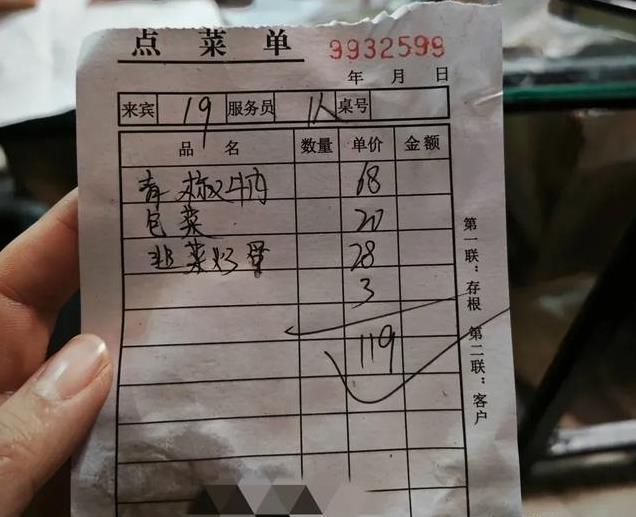 点菜单 9932599
年 月 日
来宾 19 服务员 1人 桌号
品名 数量 单价 金额
青椒 牛肉 68
包菜 20
韭菜炒 28
3
119
第一联：存根 第二联：客户